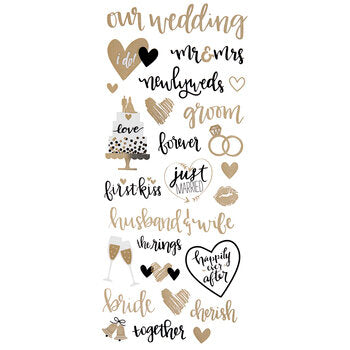 our wedding
i do!
mr & mrs
newlyweds
groom
love
forever
just
MARRIED
first kiss
husband & wife
the rings
happily
ever
after
bride
cherish
together